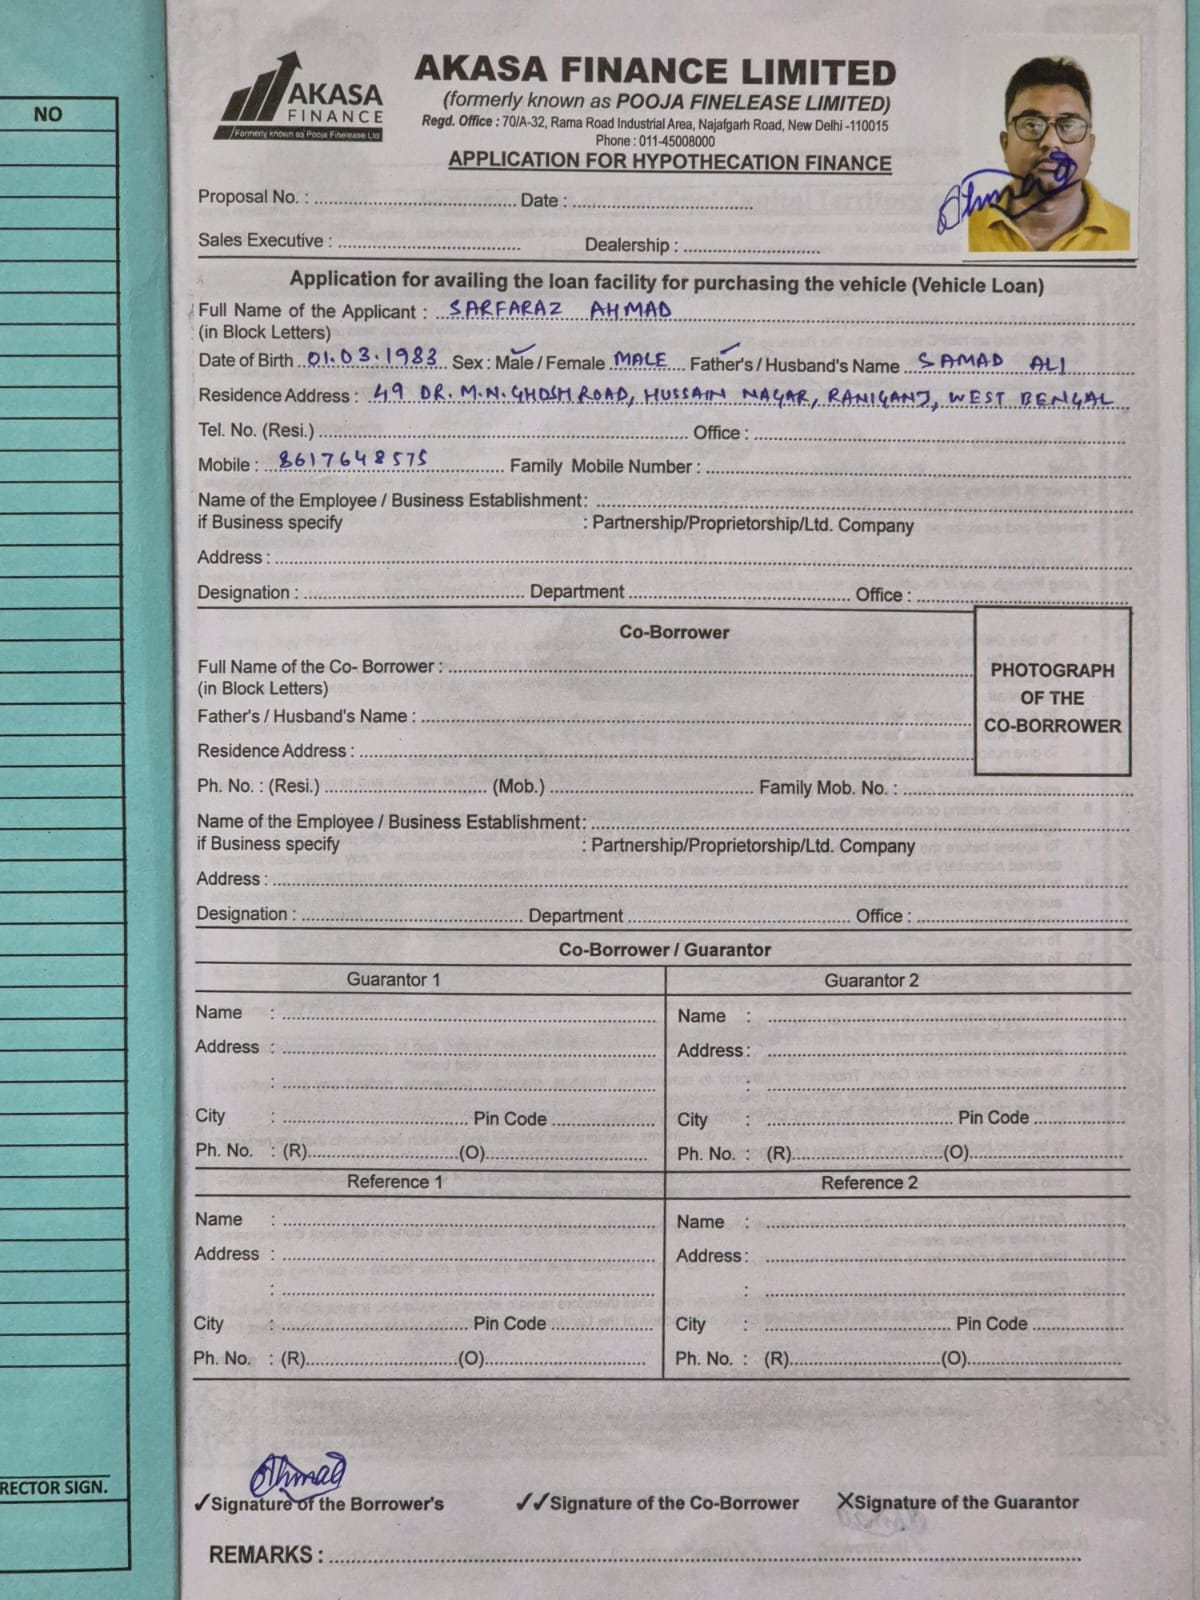 NO
RECTOR SIGN.
AKASA
FINANCE
Formerly known as Pooja Finelease Ltd
AKASA FINANCE LIMITED
(formerly known as POOJA FINELEASE LIMITED)
Regd. Office : 70/A-32, Rama Road Industrial Area, Najafgarh Road, New Delhi -110015
Phone : 011-45008000
APPLICATION FOR HYPOTHECATION FINANCE
Ahmad
Proposal No. : Date :
Sales Executive : Dealership :
Application for availing the loan facility for purchasing the vehicle (Vehicle Loan)
Full Name of the Applicant : SARFARAZ AHMAD
(in Block Letters)
Date of Birth 01.03.1983 Sex : Male / Female MALE Father's / Husband's Name SAMAD ALI
Residence Address : 49 DR. M.N. GHOSH ROAD, HUSSAIN NAGAR, RANIGANJ, WEST BENGAL
Tel. No. (Resi.) Office :
Mobile : 8617648575 Family Mobile Number :
Name of the Employee / Business Establishment:
if Business specify : Partnership/Proprietorship/Ltd. Company
Address :
Designation : Department Office :
Co-Borrower
Full Name of the Co- Borrower :
(in Block Letters)
Father's / Husband's Name :
Residence Address :
PHOTOGRAPH
OF THE
CO-BORROWER
Ph. No. : (Resi.) (Mob.) Family Mob. No. :
Name of the Employee / Business Establishment:
if Business specify : Partnership/Proprietorship/Ltd. Company
Address :
Designation : Department Office :
Co-Borrower / Guarantor
Guarantor 1 Guarantor 2
Name : Name :
Address : Address :
: :
City : Pin Code City : Pin Code
Ph. No. : (R) (O) Ph. No. : (R) (O)
Reference 1 Reference 2
Name : Name :
Address : Address :
: :
City : Pin Code City : Pin Code
Ph. No. : (R) (O) Ph. No. : (R) (O)
Ahmad
✓Signature of the Borrower's ✓✓Signature of the Co-Borrower XSignature of the Guarantor
REMARKS :